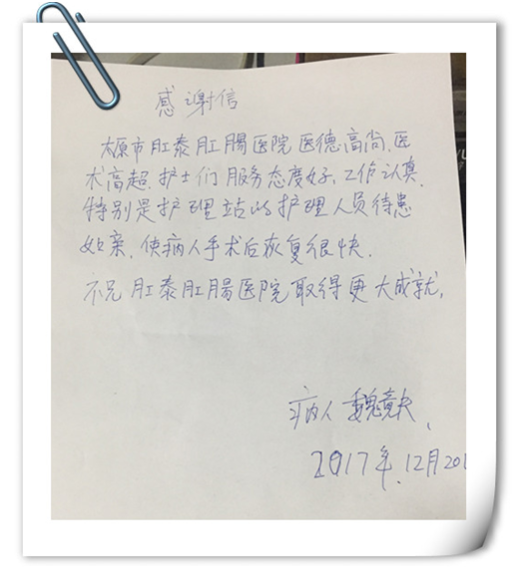 感谢信
太原市肛泰肛肠医院医德高尚,医
术高超.护士们服务态度好,工作认真.
特别是护理站的护理人员待患
如亲,使病人手术后恢复很快.
不兄肛泰肛肠医院取得更大成就,
病人 魏
2017年.12月20